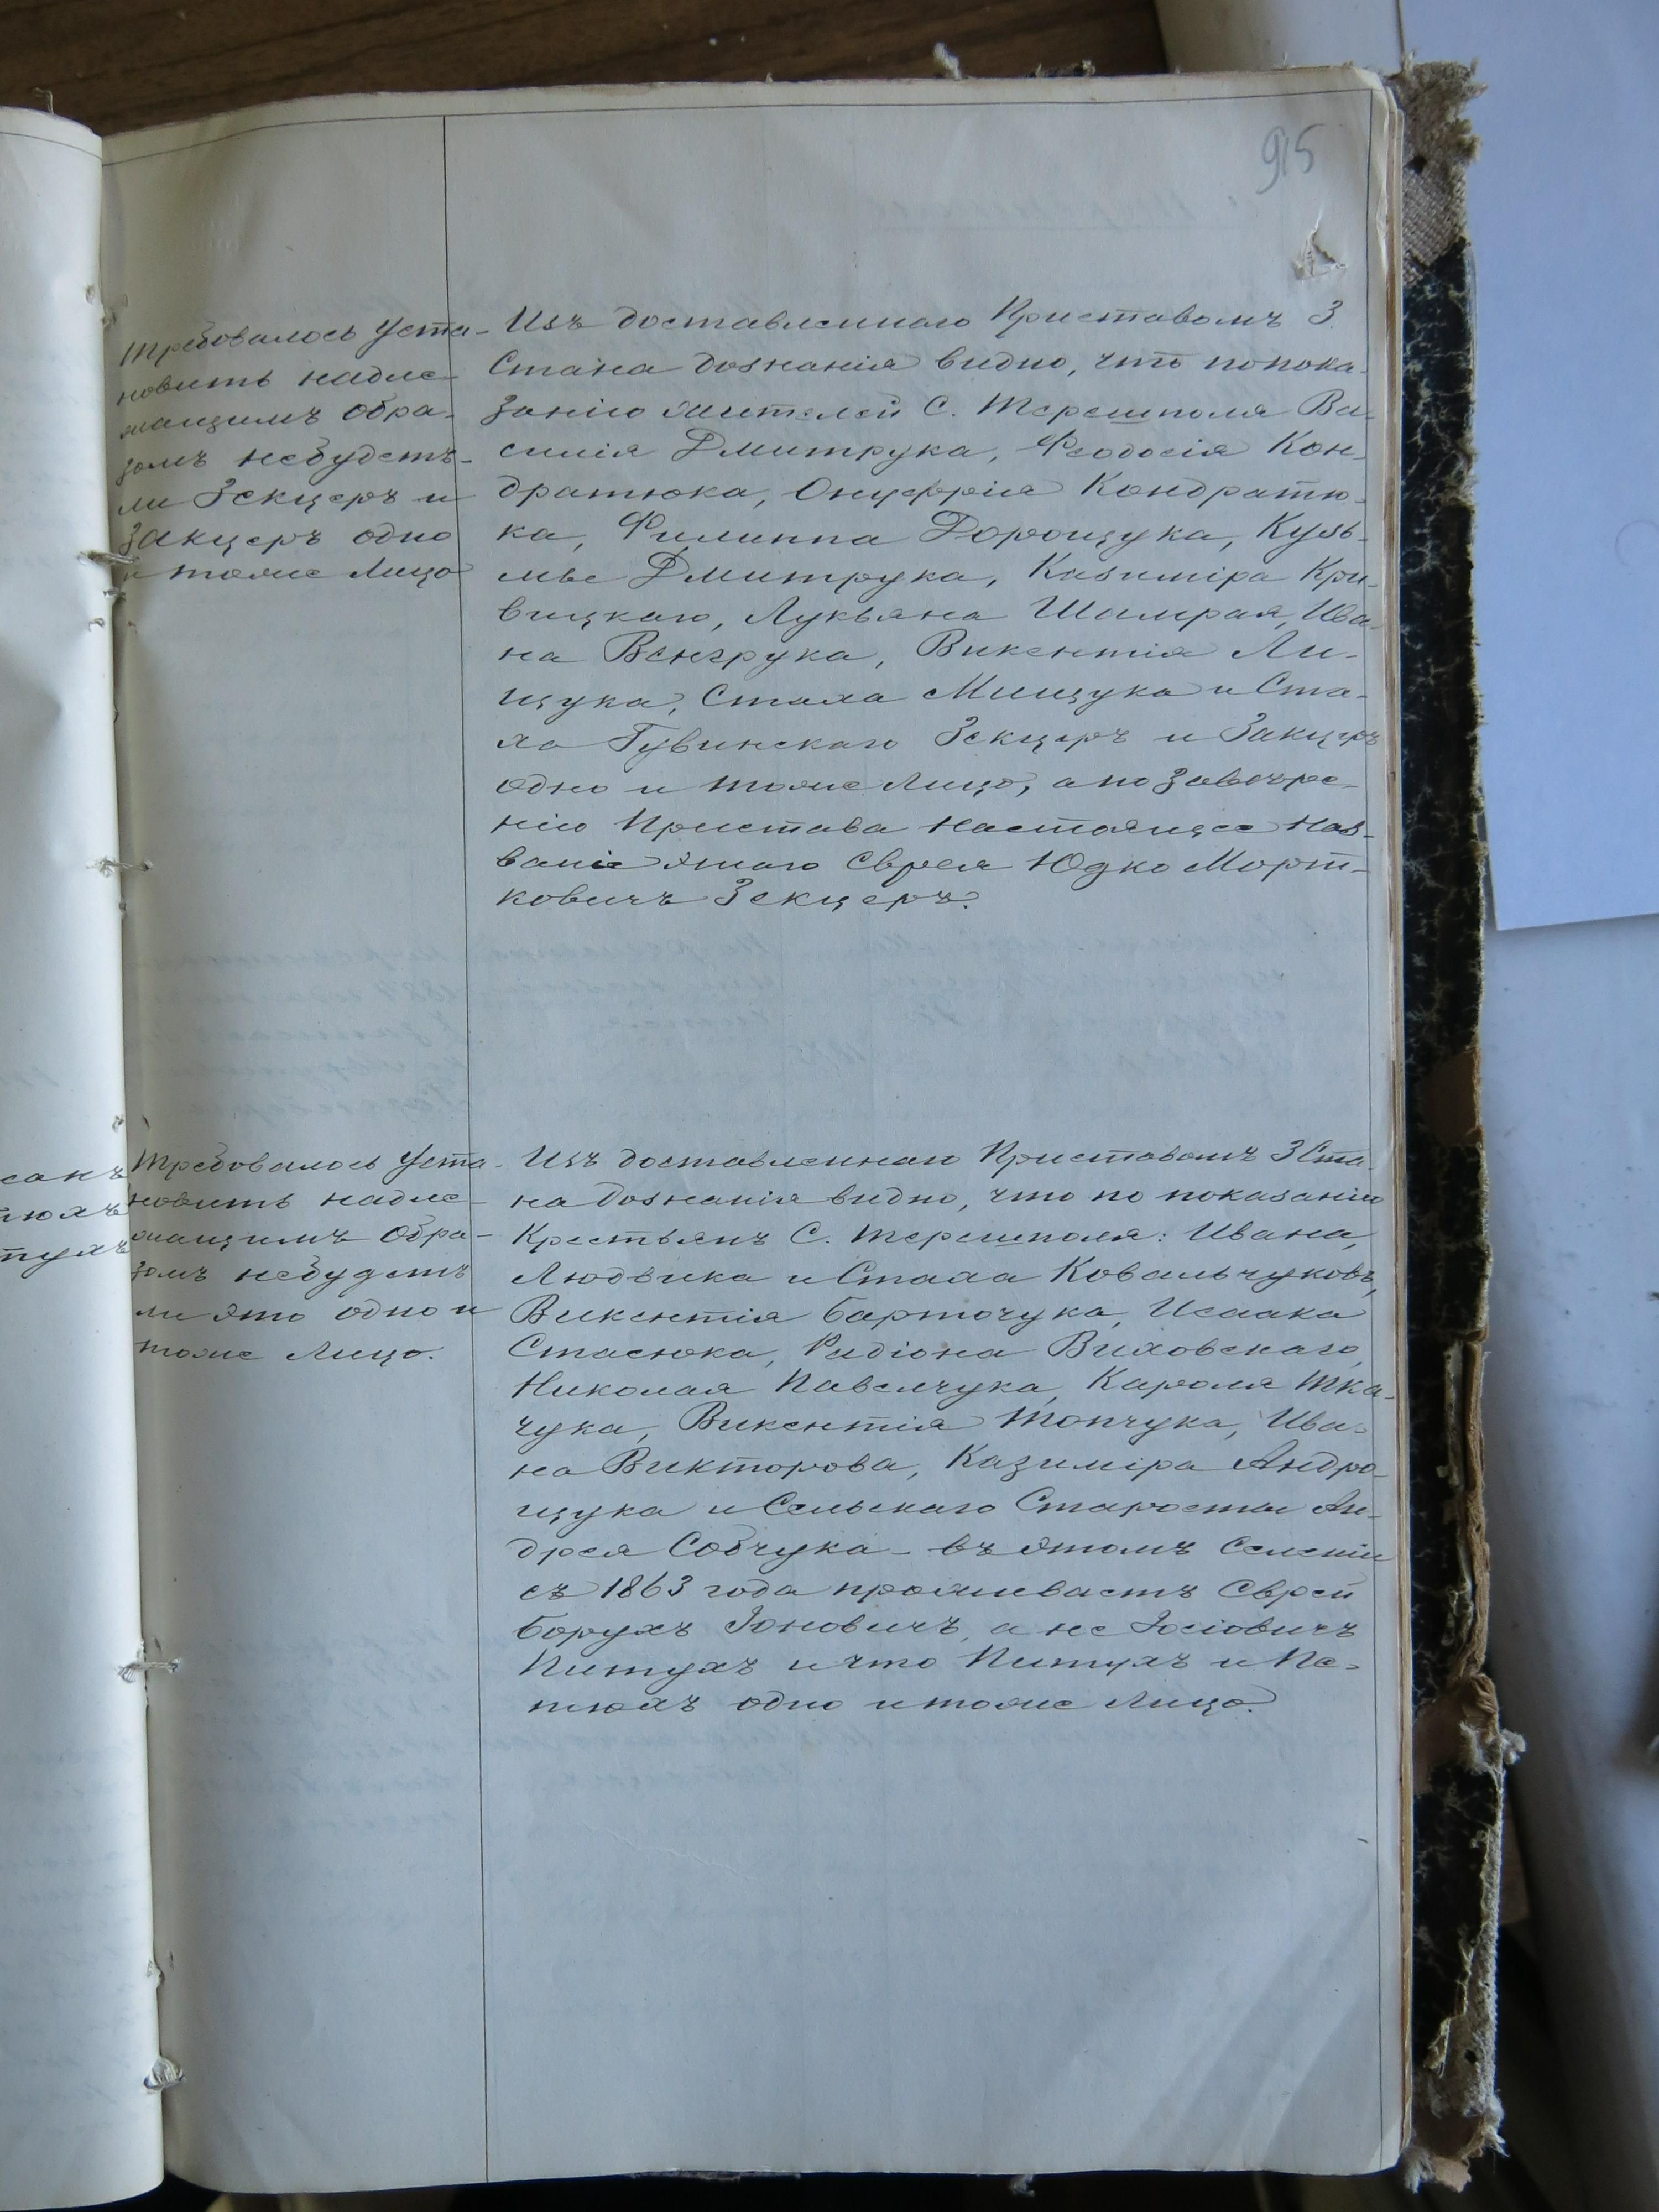 95
Требовалось уста-
новить надле-
жащимъ обра-
зомъ небудетъ-
ли Зекцеръ и
Закцеръ одно
и тоже лицо
Изъ доставленнаго Приставомъ 3.
Стана дознанія видно, что попока-
занію жителей С. Терешполя Ва-
силія Дмитрука, Феодосія Кон-
дратюка, Онуфрія Кондратю-
ка, Филиппа Дорощука, Кузь-
мы Дмитрука, Казиміра Кри-
вицкаго, Лукьяна Шамрая, Ива-
на Венгрука, Викентія Ли-
щука, Стаха Мищука и Ста-
ха Гувинскаго Зекцеръ и Закцеръ
одно и тоже лицо, а по завѣре-
нію Пристава настоящее наз-
ваніе этаго Еврея ЮдкоМорт-
ковичъ Зекцеръ.
санъ
тюхъ
тухъ
Требовалось уста-
новить надле-
жащимъ обра-
зомъ небудетъ
ли это одно и
тоже лицо.
Изъ доставленнаго Приставомъ 3 Ста-
на дознанія видно, что по показанію
Крестьянъ С. Терешполя: Ивана,
Людвика и Стаха Ковальчуковъ,
Викентія Барточука, Исаака
Стасюка, Радіона Виховскаго,
Николая Павелчука, Кароля Тка-
чука, Викентія Топчука, Ива-
на Викторова, Казиміра Андро-
щука и Сельскаго Старосты Ан-
дрея Собчука - въ этомъ Селеніи
съ 1863 года проживаетъ Еврей
Борухъ Іоновичъ, а не Іосіовичъ
Питухъ и что Питухъ и Пе-
тюхъ одно и тоже лицо.